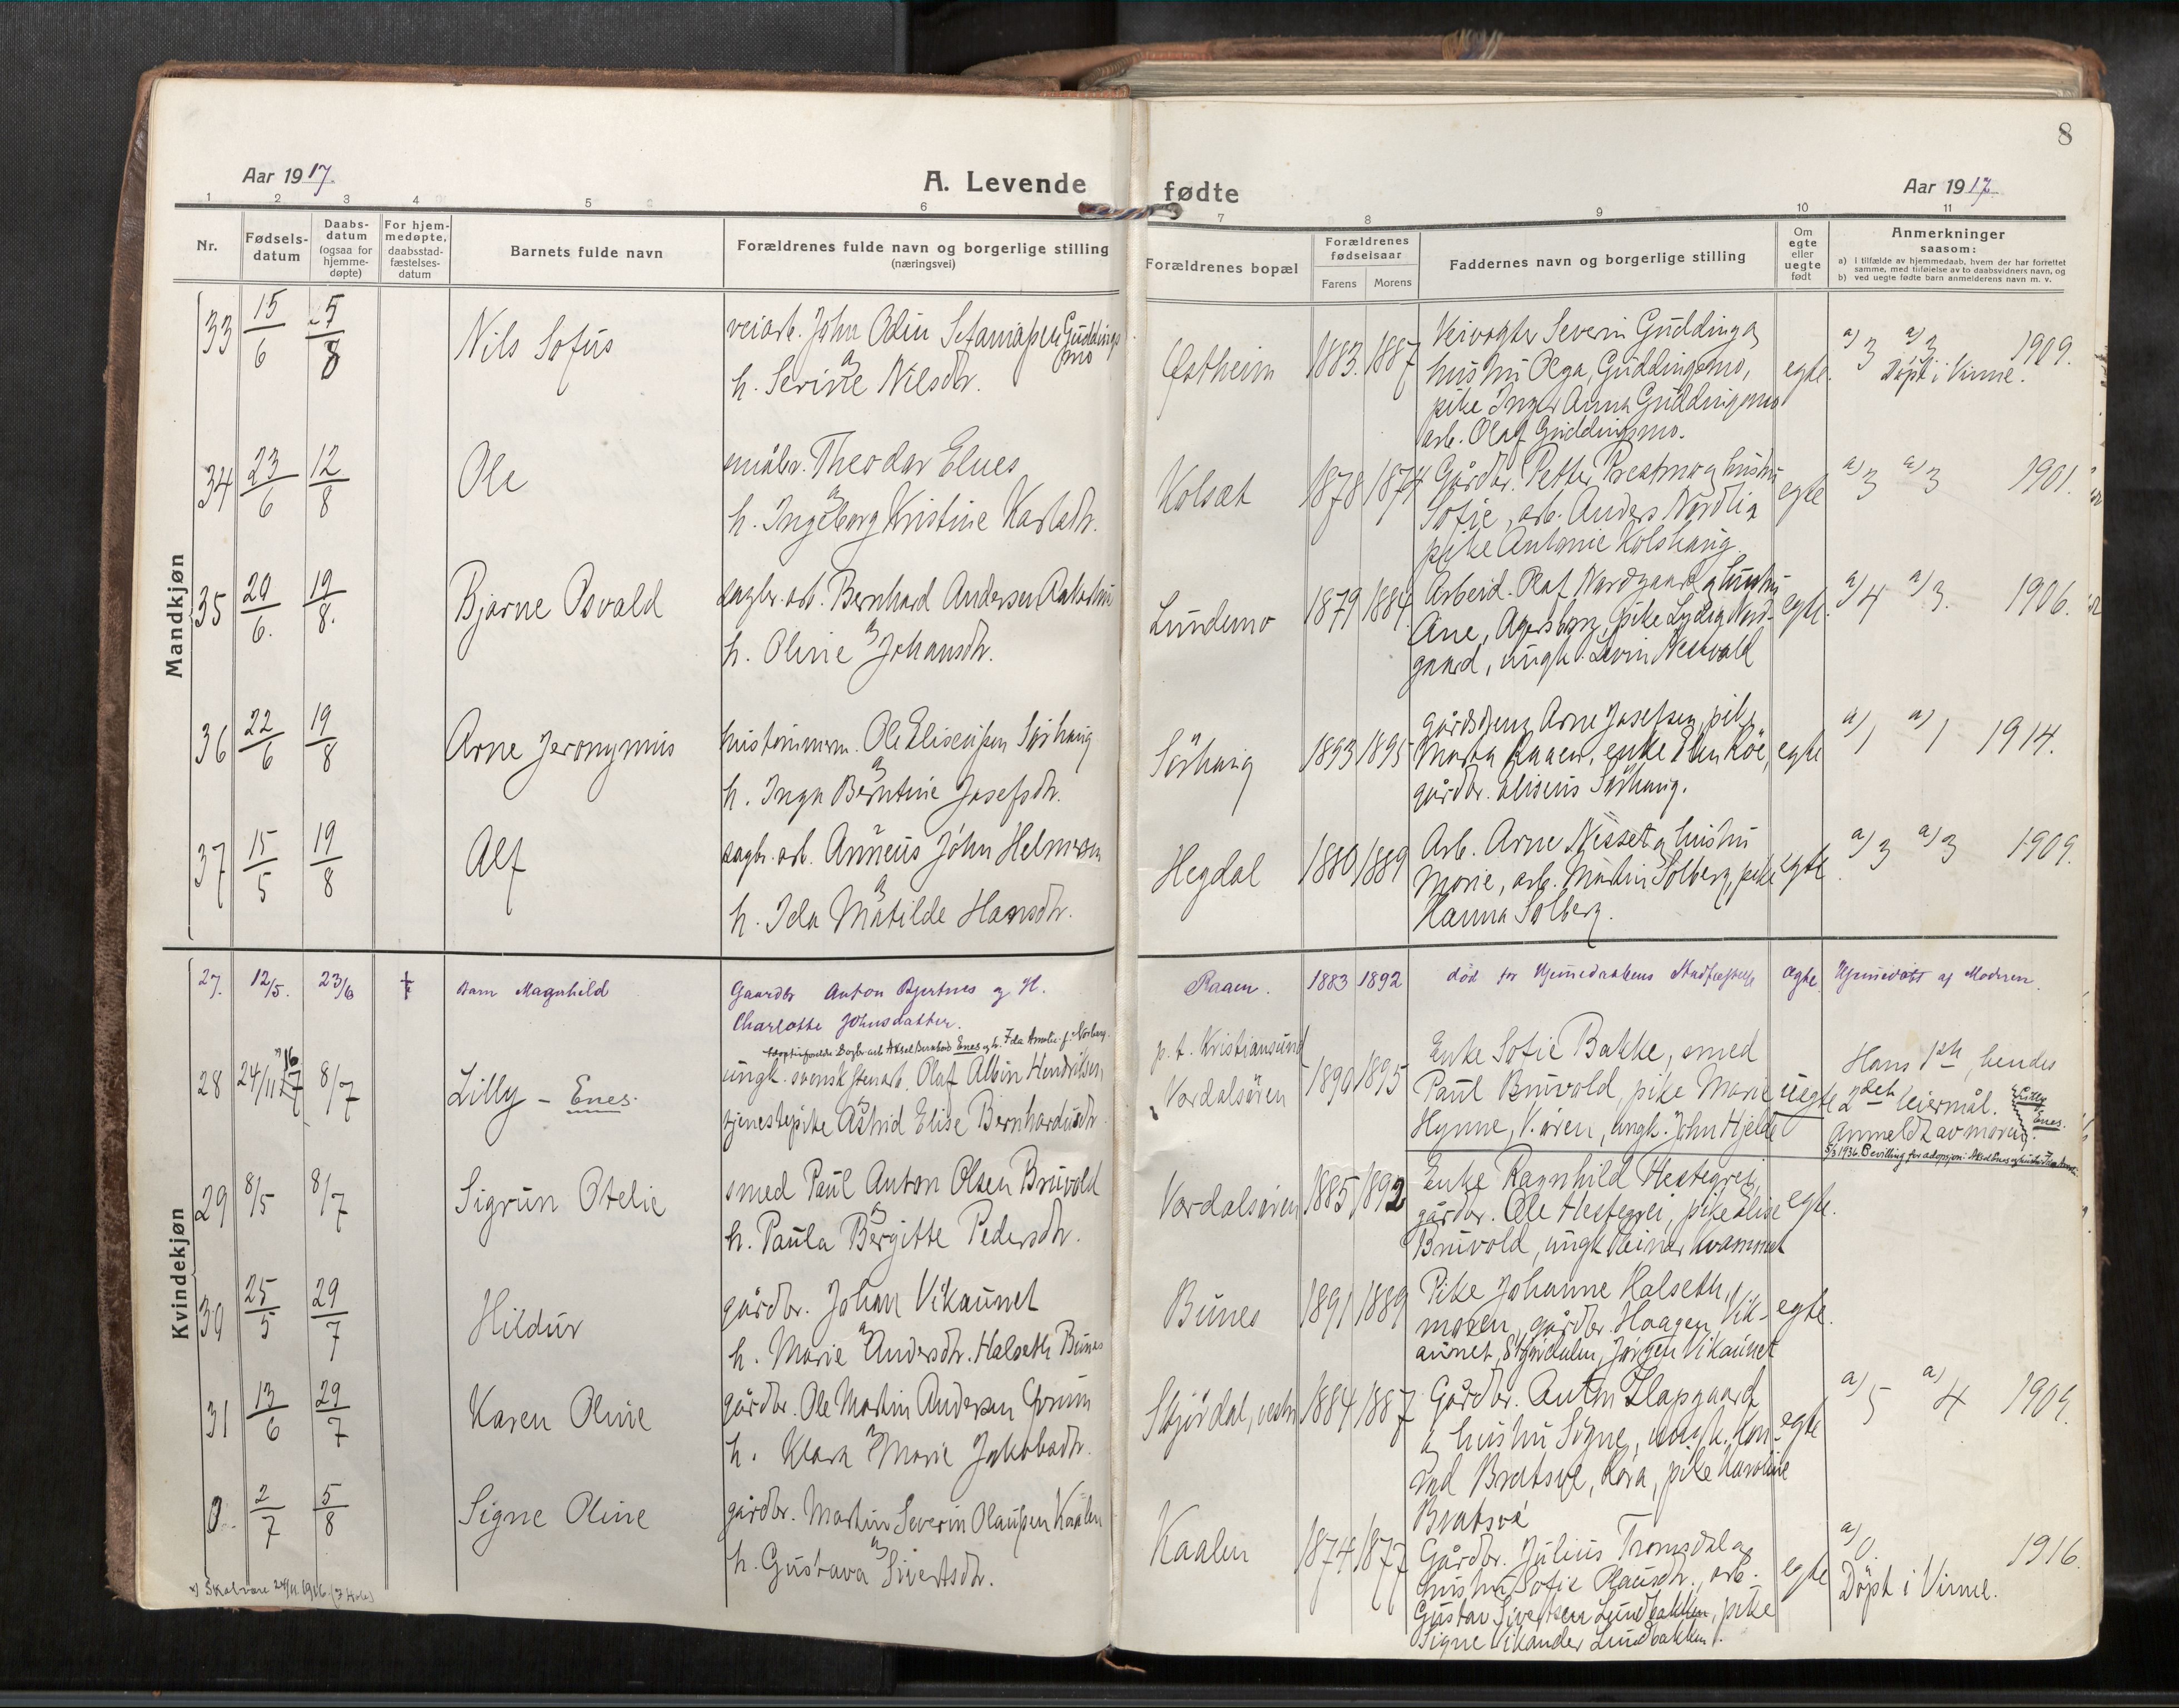 8
Aar 1917.
A. Levende fødte
Aar 1917
1 2 3 4 5 6 7 8 9 10 11
Nr.
Fødsels-
datum
Daabs-
datum
(ogsaa for
hjemme-
døpte)
For hjem-
medøpte,
daabsstad-
fæstelses-
datum
Barnets fulde navn
Forældrenes fulde navn og borgerlige stilling
(næringsvei)
Forældrenes bopæl
Forældrenes
fødselsaar
Farens
Morens
Faddernes navn og borgerlige stilling
Om
egte
eller
uegte
født
Anmerkninger
saasom:
a) i tilfælde av hjemmedaab, hvem der har forrettet
samme, med tilføielse av to daabsvidners navn, og
b) ved uegte fødte barn anmelderens navn m. v.
Mandkjøn
33 15/6 5/8 Nils Sofus
veiarb. John Odin Guddings
mo
h. Serine Nilsdtr.
1883. 1887
Veivogter Severin Gudding og
hustru Olga, Guddingsmo,
pike Inger Anna Guddingsmo
arb. Olaf Guddingsmo.
egte.
a) 3 a) 3 1909.
Döpt i Vinne.
34 23/6 12/8 Ole
småbr. Theodor Elnes
h. Ingeborg Kristine Karlsdtr.
Kolsat 1878 1874
Gårdbr. Petter Prestmo og hustru
Sofie, arb. Anders Nordli
pike Antonie Kolshaug
egte
a) 3 a) 3 1901.
35 20/6. 19/8. Bjarne Osvald
dagbr. arb. Bernhard Andersen
h. Oline Johansdtr.
Lundemo 1879 1884
Arbeid. Olaf Nordgaard og hustru
Ane, pike Lydia Nord-
gaard, ungk.
egte.
a) 4 a) 3. 1906.
36 22/6 19/8 Arne Jeronymus
hustömmerm. Ole Eliseussen Sörhaug
h. Inga Berntine Josefsdtr.
Sörhaug 1893 1895
gårdbr. Arne Josefsen, pike
Marta Raaen, enke Elen Röe,
gårdbr. Eliseus Sörhaug.
egte
a) 1 a) 1 1914.
37 15/5 19/8 Alf
dagbr. arb. Anneus John Helmersen
h. Ida Matilde Hansdtr.
Hegdal 1880 1889
Arb. Arne Nesset og hustru
Marie, arb. Martin Solberg, pike
Hanna Solberg.
egte
a) 3 a) 3 1909.
Kvindekjøn
27. 12/5. 23/6 † Barn Magnhild
Gaardbr Anton Bjertnes og H.
Charlotte Johnsdatter.
Raaen. 1883 1892
død før Hjemmedaabens Stadfæstelse
egte.
Hjemmedøbt af Moderen.
28 24/11 16 8/7 Lilly – Enes.
Adoptivforeldre Dagbr.arb Aksel Bernhard Enes og h. Ida Amalie f. Norberg.
ungk. svensk stenarb. Olaf Albin Hendriksen
tjenestepike Astrid Elise Bernhardusdtr
p. t. Kristiansund
Verdalsören
1890 1895
Enke Sofie Bakke, smed
Paul Bruvold, pike Marie
Hynne, V. ören, ungk. John Hjelde
uegte
Hans 1ste, hendes
2det leiermål. Lilly
Enes.
Anmeldt av moren.
1936. Bevilling for adopsjon: Aksel Enes og hustru Ida Amalie
29 8/5 8/7 Sigrun Otelie
smed Paul Anton Olsen Bruvold
h. Paula Bergitte Pedersdtr.
Verdalsören 1885 1892
Enke Ragnhild Hestegrei,
gårdbr. Ole Hestegrei, pike Elise
Bruvold, ungk. Einar Kvammet
egte.
30 25/5 29/7 Hildur
gårdbr. Johan Vikaunet
h. Marie Andersdtr. Halseth Bunes
Bunes 1891 1889
Pike Johanne Halseth,
gårdbr. Haagen Vik-
aunet, Stjördalen, Jörgen Vikaunet
egte.
31 13/6 29/7 Karen Oline
gårdbr. Ole Martin Andersen
h. Klara Marie Jakobsdtr.
Skjördal, vestre 1884 1887
Gårdbr. Anton
og hustru Signe, ungk. Kon
rad Bratsve, Röra, pike Karoline
Bratsve
egte
a) 5 a) 4 1909.
2/7 5/8 Signe Oline
gårdbr. Martin Severin Olaussen Kaalen
h. Gustava Sivertsdtr.
Kaalen 1874 1877
Gårdbr. Julius Tromsdal og
hustru Sofie Olausdtr., arb.
Gustav Sivertsen Lundbakken, pike
Signe Vikander Lundbakken.
egte
a) 1916.
Döpt i Vinne.
x) Skal være 24/11 1916